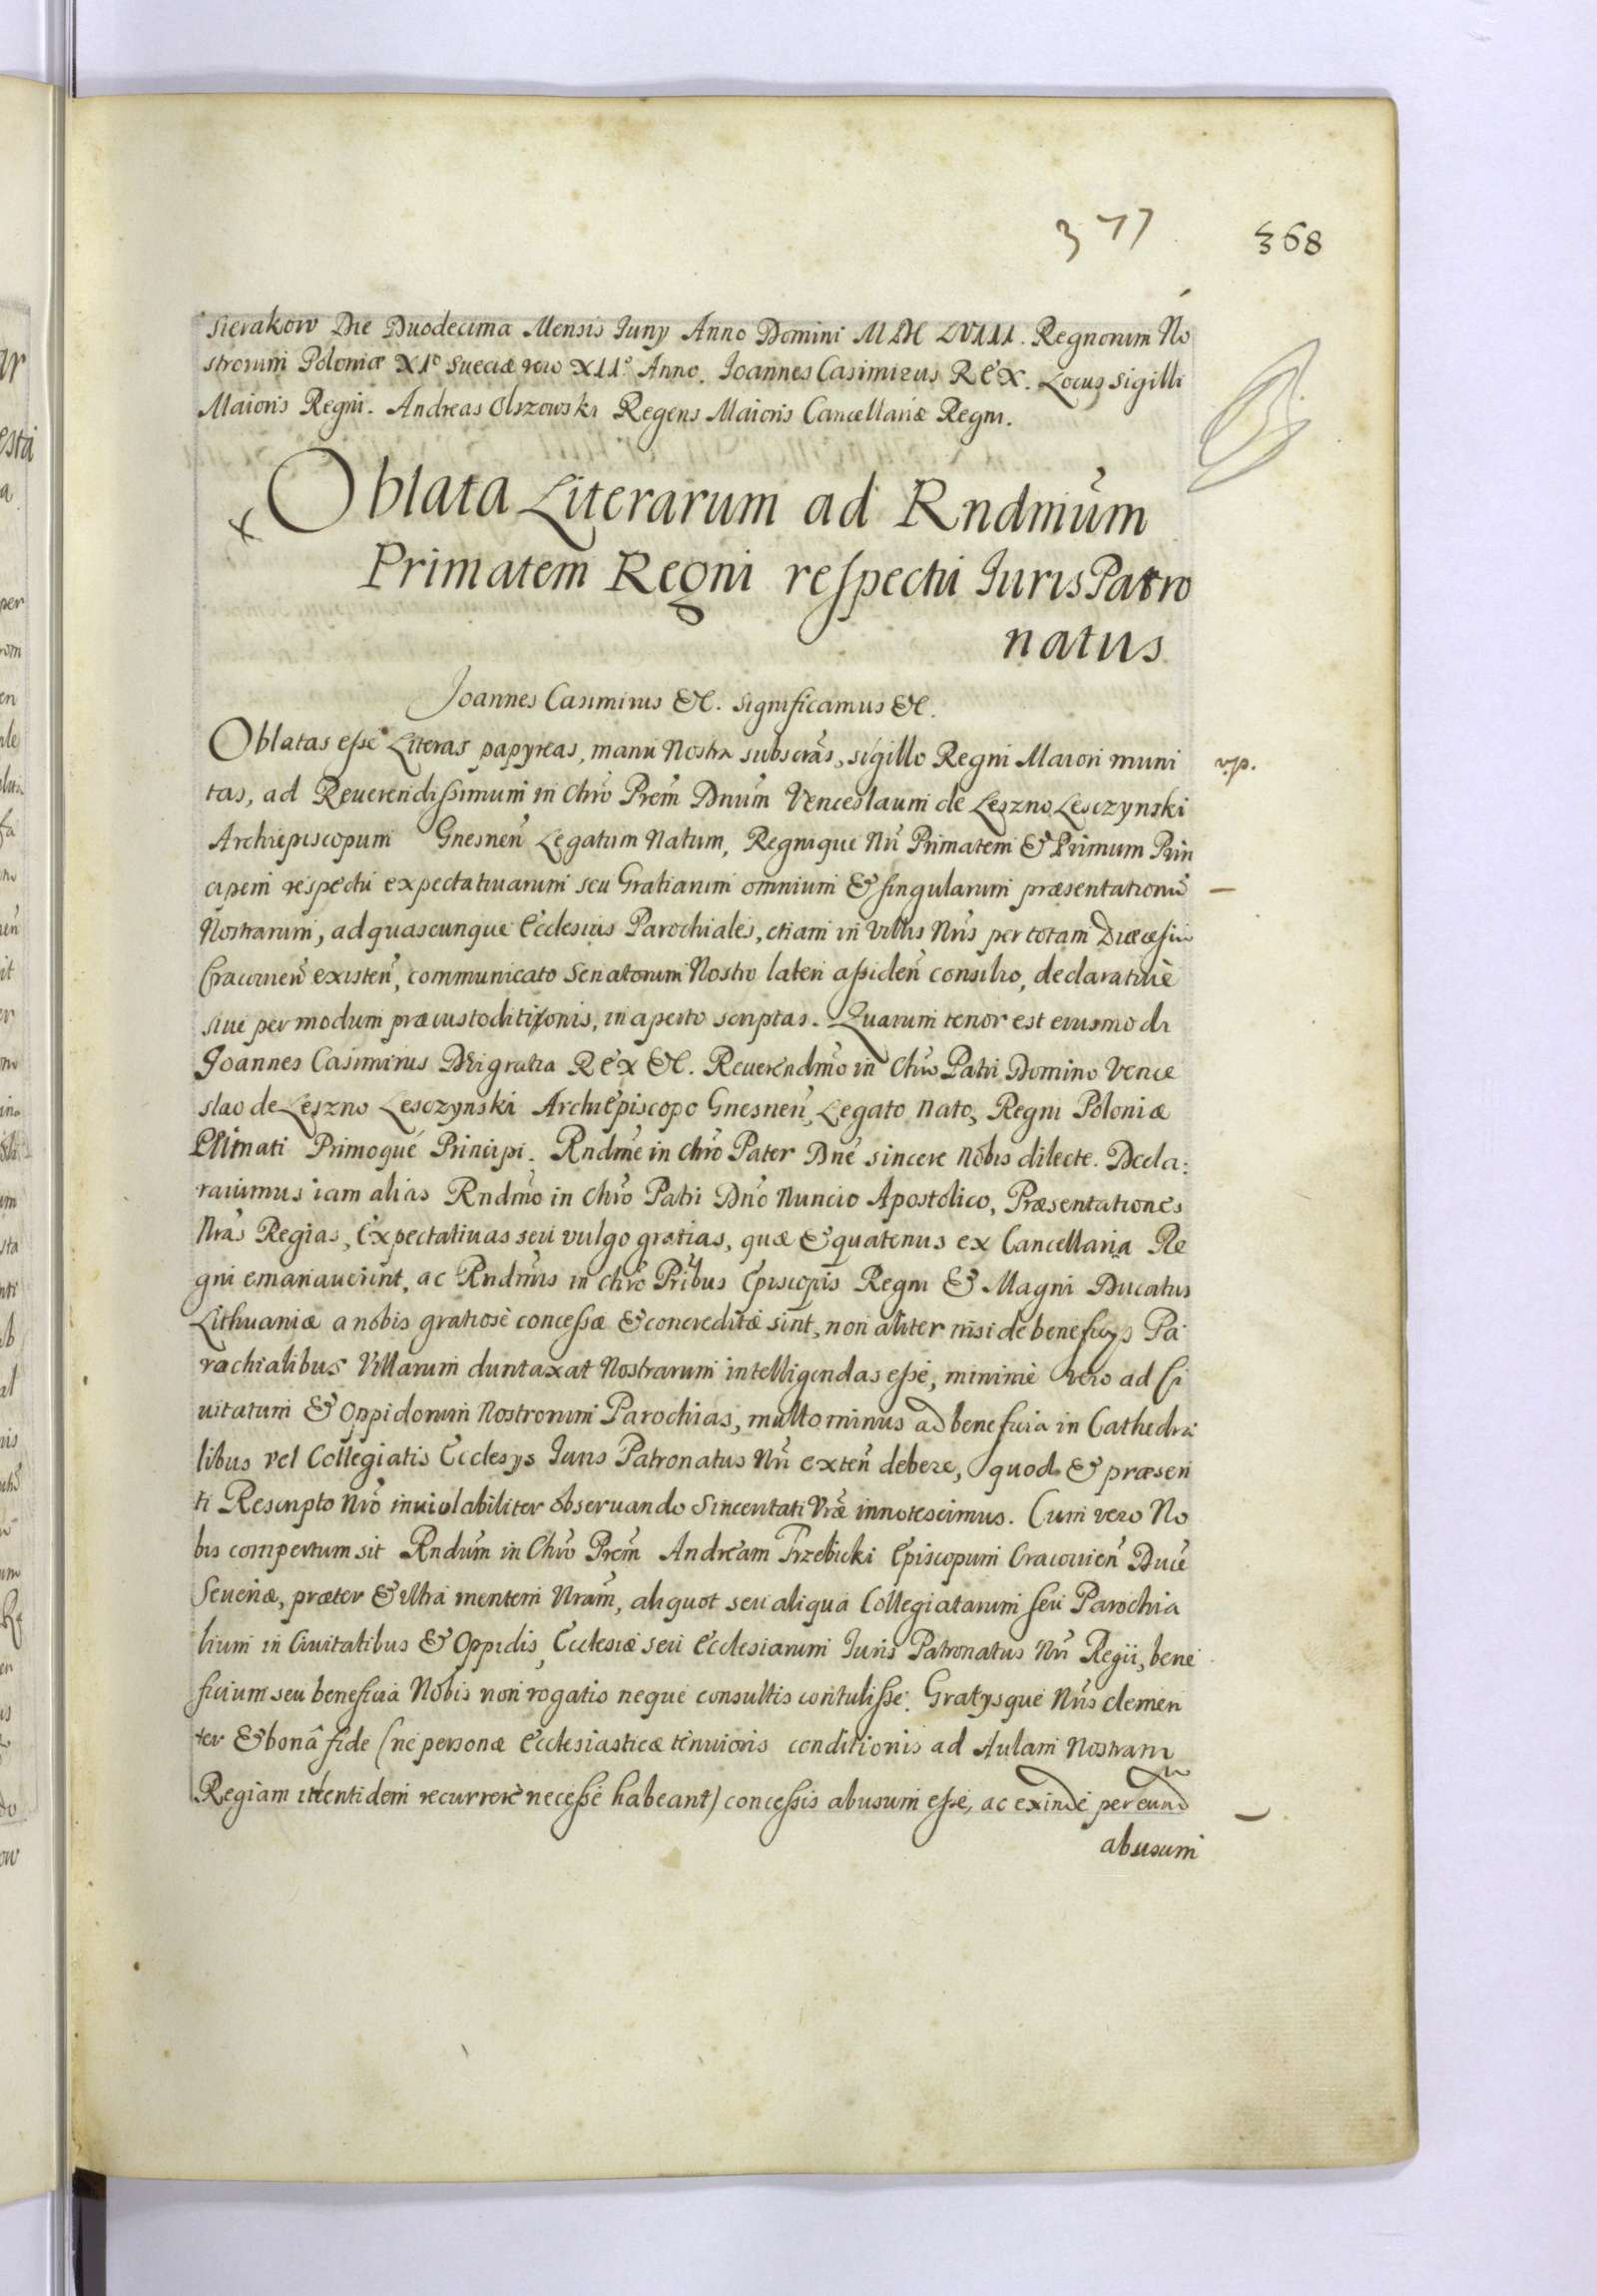 377
368
Sierakow Die Duodecima Mensis Iuny Anno Domini MDC LVIII. Regnorum No
strorum Poloniæ XI° Sueciæ vero XII° Anno. Ioannes Casimirus REX. Locus Sigilli
Maioris Regni. Andreas Olszowski Regens Maioris Cancellariæ Regni.
Oblata Literarum ad Rndmum
Primatem Regni respectu Iuris Patro
natus
Joannes Casimirus &c. significamus &c.
Oblatas esse Literas papyreas, manu Nostra subscras, sigillo Regni Maiori muni
tas, ad Reuerendissimum in Chro Prem Dnum Venceslaum de Leszno Lesczynski
Archiepiscopum Gnesnen Legatum Natum, Regnique Nri Primatem & Primum Prin
cipem respectu expectatiuarum seu Gratiarum omnium & singularum præsentationu
Nostrarum, ad quascunque Ecclesias Parochiales, etiam in Villis Nris per totam Diæcesin
Cracouien existen, communicato Senatorum Nostro lateri assiden consilio, declaratiuè
siue per modum præcustoditionis, in aperto scriptas. Quarum tenor est eiusmodi
Joannes Casimirus Dei gratia REX &c. Reuerendmo in Chro Patri Domino Vence
slao de Leszno Lesczynski Archiepiscopo Gnesnen, Legato Nato, Regni Poloniæ
Primati Primoque Principi. Rndme in Chro Pater Dne sincere Nobis dilecte. Decla:
rauimus iam alias Rndmo in Chro Patri Dno Nuncio Apostolico, Præsentationes
Nras Regias, Expectatiuas seu vulgo gratias, quæ & quatenus ex Cancellaria Re
gni emanauerint, ac Rndmis in Chro Pribus Episcopis Regni & Magni Ducatus
Lithuaniæ a nobis gratiosè concessæ & concreditæ sint, non aliter nisi de beneficys Pa
rachialibus Villarum duntaxat Nostrarum intelligendas esse, minimè vero ad Ci
uitatum & Oppidorum Nostrorum Parochias, multo minus ad beneficia in Cathedra
libus vel Collegiatis Ecclesys Iuris Patronatus Nri exten debere, quod & præsen
ti Rescripto Nro inuiolabiliter obseruando Sinceritati Vræ innotescimus. Cum vero No
bis compertum sit Rndum in Chro Prem Andream Trzebicki Episcopum Cracouien Duce
Seueriæ, præter & ultra mentem Nram, aliquot seu aliqua Collegiatarum seu Parochia
lium in Ciuitatibus & Oppidis, Ecclesiæ seu Ecclesiarum Iuris Patronatus Nri Regii, bene
ficium seu beneficia Nobis non rogatis neque consultis contulisse. Gratysque Nris clemen
ter & bonâ fide (ne personæ Ecclesiasticæ tenuioris conditionis ad Aulam Nostram
Regiam ittentidem recurrere necesse habeant) concessis abusum esse, ac exinde per eund
abusum